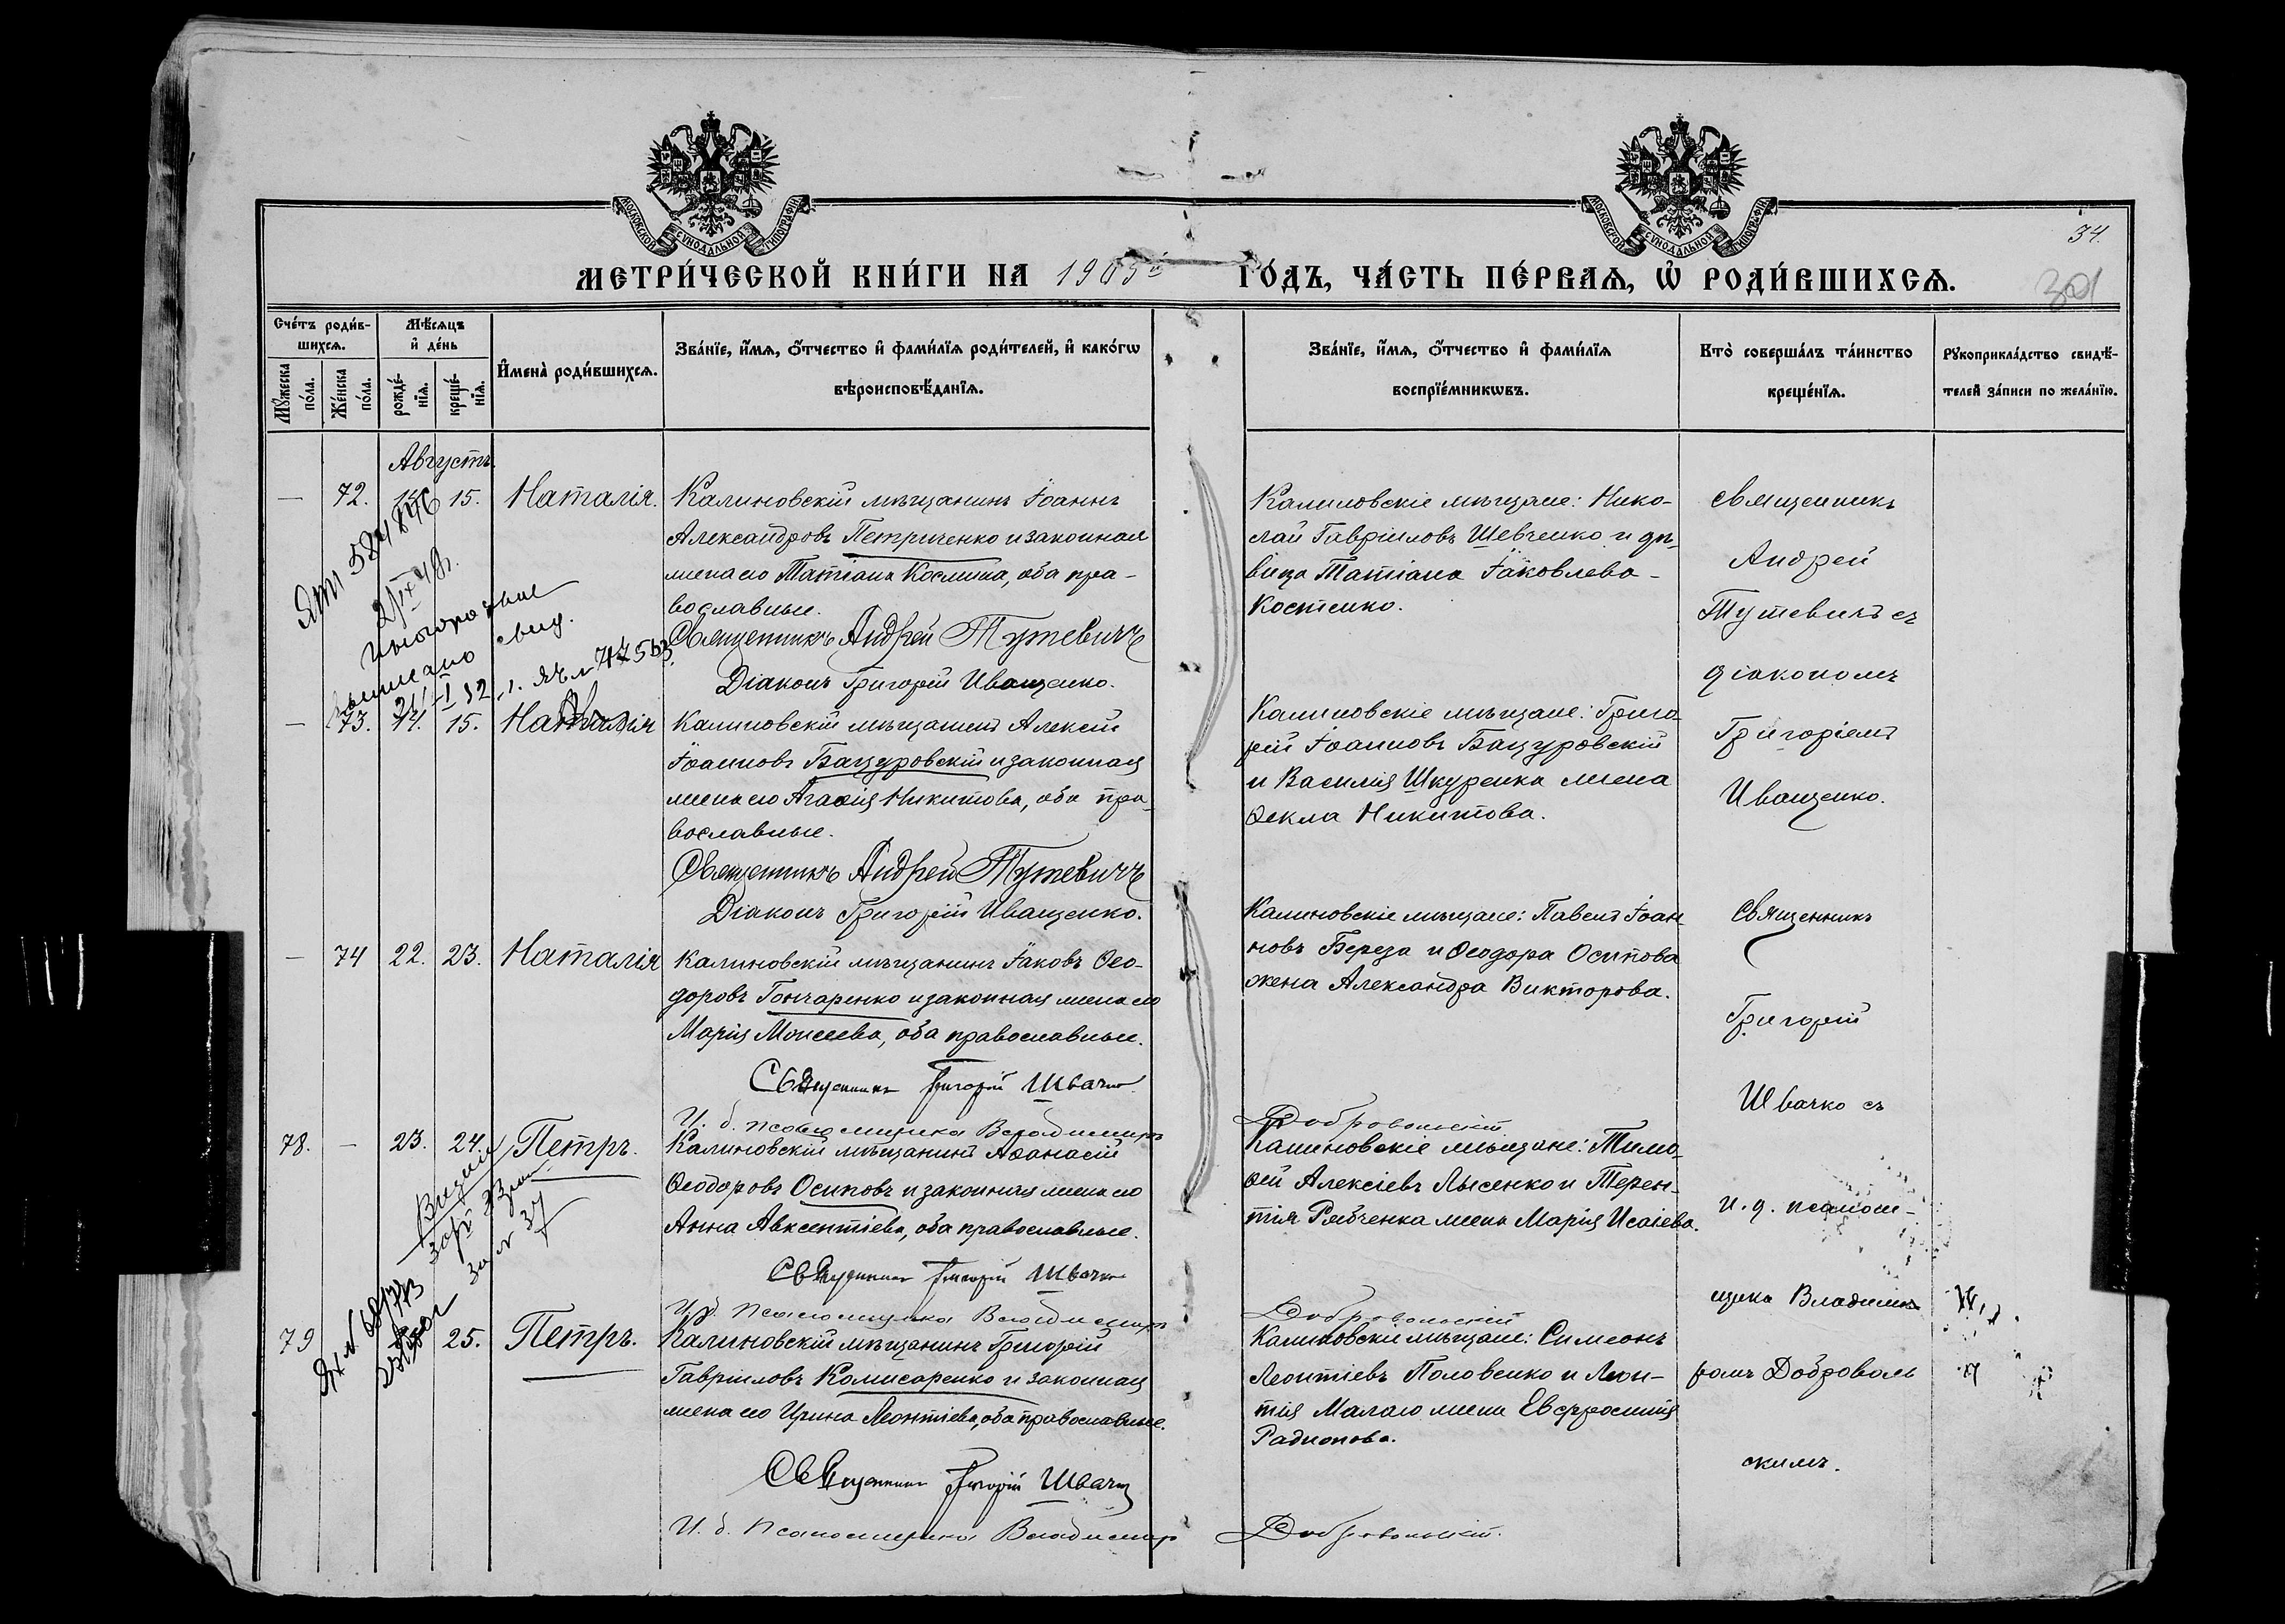 МОСКОВСКОЙ СѴНОДАЛЬНОЙ ТИПОГРАФІИ
МОСКОВСКОЙ СѴНОДАЛЬНОЙ ТИПОГРАФІИ
34.
МЕТРИ́ЧЕСКОЙ КНИ́ГИ НА 1905й ГО́ДЪ, ЧА́СТЬ ПЕ́РВАѦ, Ѡ҆ РОДИ́ВШИХСѦ.
Сче́тъ роди́в-
шихсѧ.
Мѣ́сѧцъ
и҆ де́нь
Мꙋ́жеска по́ла.
Же́нска по́ла.
рожде́-
нїѧ.
креще́-
нїѧ.
И҆мена̀ роди́вшихсѧ.
Зва́нїе, и҆́мѧ, ѻ҆́тчество и҆ фами́лїѧ роди́телей, и҆ како́гѡ
вѣроисповѣ́данїѧ.
Зва́нїе, и҆́мѧ, ѻ҆́тчество и҆ фами́лїѧ
воспрїе́мникѡвъ.
Кто̀ соверша́лъ та́инство
креще́нїѧ.
Рꙋкоприкла́дство свидѣ́-
телей за́писи по жела́нїю.
Августъ.
— 72. 15. Наталія.
Калиновскій мѣщанинъ Іоаннъ
Александровъ Петриченко и законная
жена его Татіана Космина, оба пра-
вославные.
Священникъ Андрей Тутевичъ
Діаконъ Григорій Иващенко.
Калиновскіе мѣщане: Нико-
лай Гавріиловъ Шевченко и дѣ-
вица Татіана Іаковлева
Костенко.
Священникъ
Андрей
Тутевичъ съ
діакономъ
Григоріемъ
Иващенко.
— 73. 14. 15. Наталія
Калиновскій мѣщанинъ Алексій
Іоанновъ Бацуровскій и законная
жена его Агаѳія Никитова, оба пра-
вославные.
Священникъ Андрей Тутевичъ
Діаконъ Григорій Иващенко.
Калиновскіе мѣщане: Григо-
рій Іоанновъ Бацуровскій
и Василія Шкуренка жена
Ѳекла Никитова.
— 74 22. 23. Наталія
Калиновскій мѣщанинъ Іаковъ Ѳео-
доровъ Гончаренко и законная жена его
Марія Моисеева, оба православные.
Священникъ Григорій Швачко
И. д. псаломщика Владимиръ Добровольскій
Калиновскіе мѣщане: Павелъ Іоан-
новъ Береза и Ѳеодора Осипова
жена Александра Викторова.
Священникъ
Григорій
Швачко съ
и. д. псалом-
щика Владими-
ромъ Доброволь
скимъ.
78. — 23. 24. Петръ.
Калиновскій мѣщанинъ Аѳанасій
Ѳеодоровъ Осиповъ и законная жена его
Анна Авксентіева, оба православные.
Священникъ Григорій Швачко
И. д. псаломщика Владимиръ Добровольскій
Калиновскіе мѣщане: Тимо-
ѳей Алексіевъ Лысенко и Терен-
тія Рябченка жена Марія Исаіева.
79 25. Петръ.
Калиновскій мѣщанинъ Григорій
Гавріиловъ Комисаренко и законная
жена его Ирина Леонтіева, оба православные.
Священникъ Григорій Швачко
И. д. псаломщика Владимиръ Добровольскій.
Калиновскіе мѣщане: Симеонъ
Леонтіевъ Половенко и Леон-
тія Малаго жена Евфросинія
Радионова.